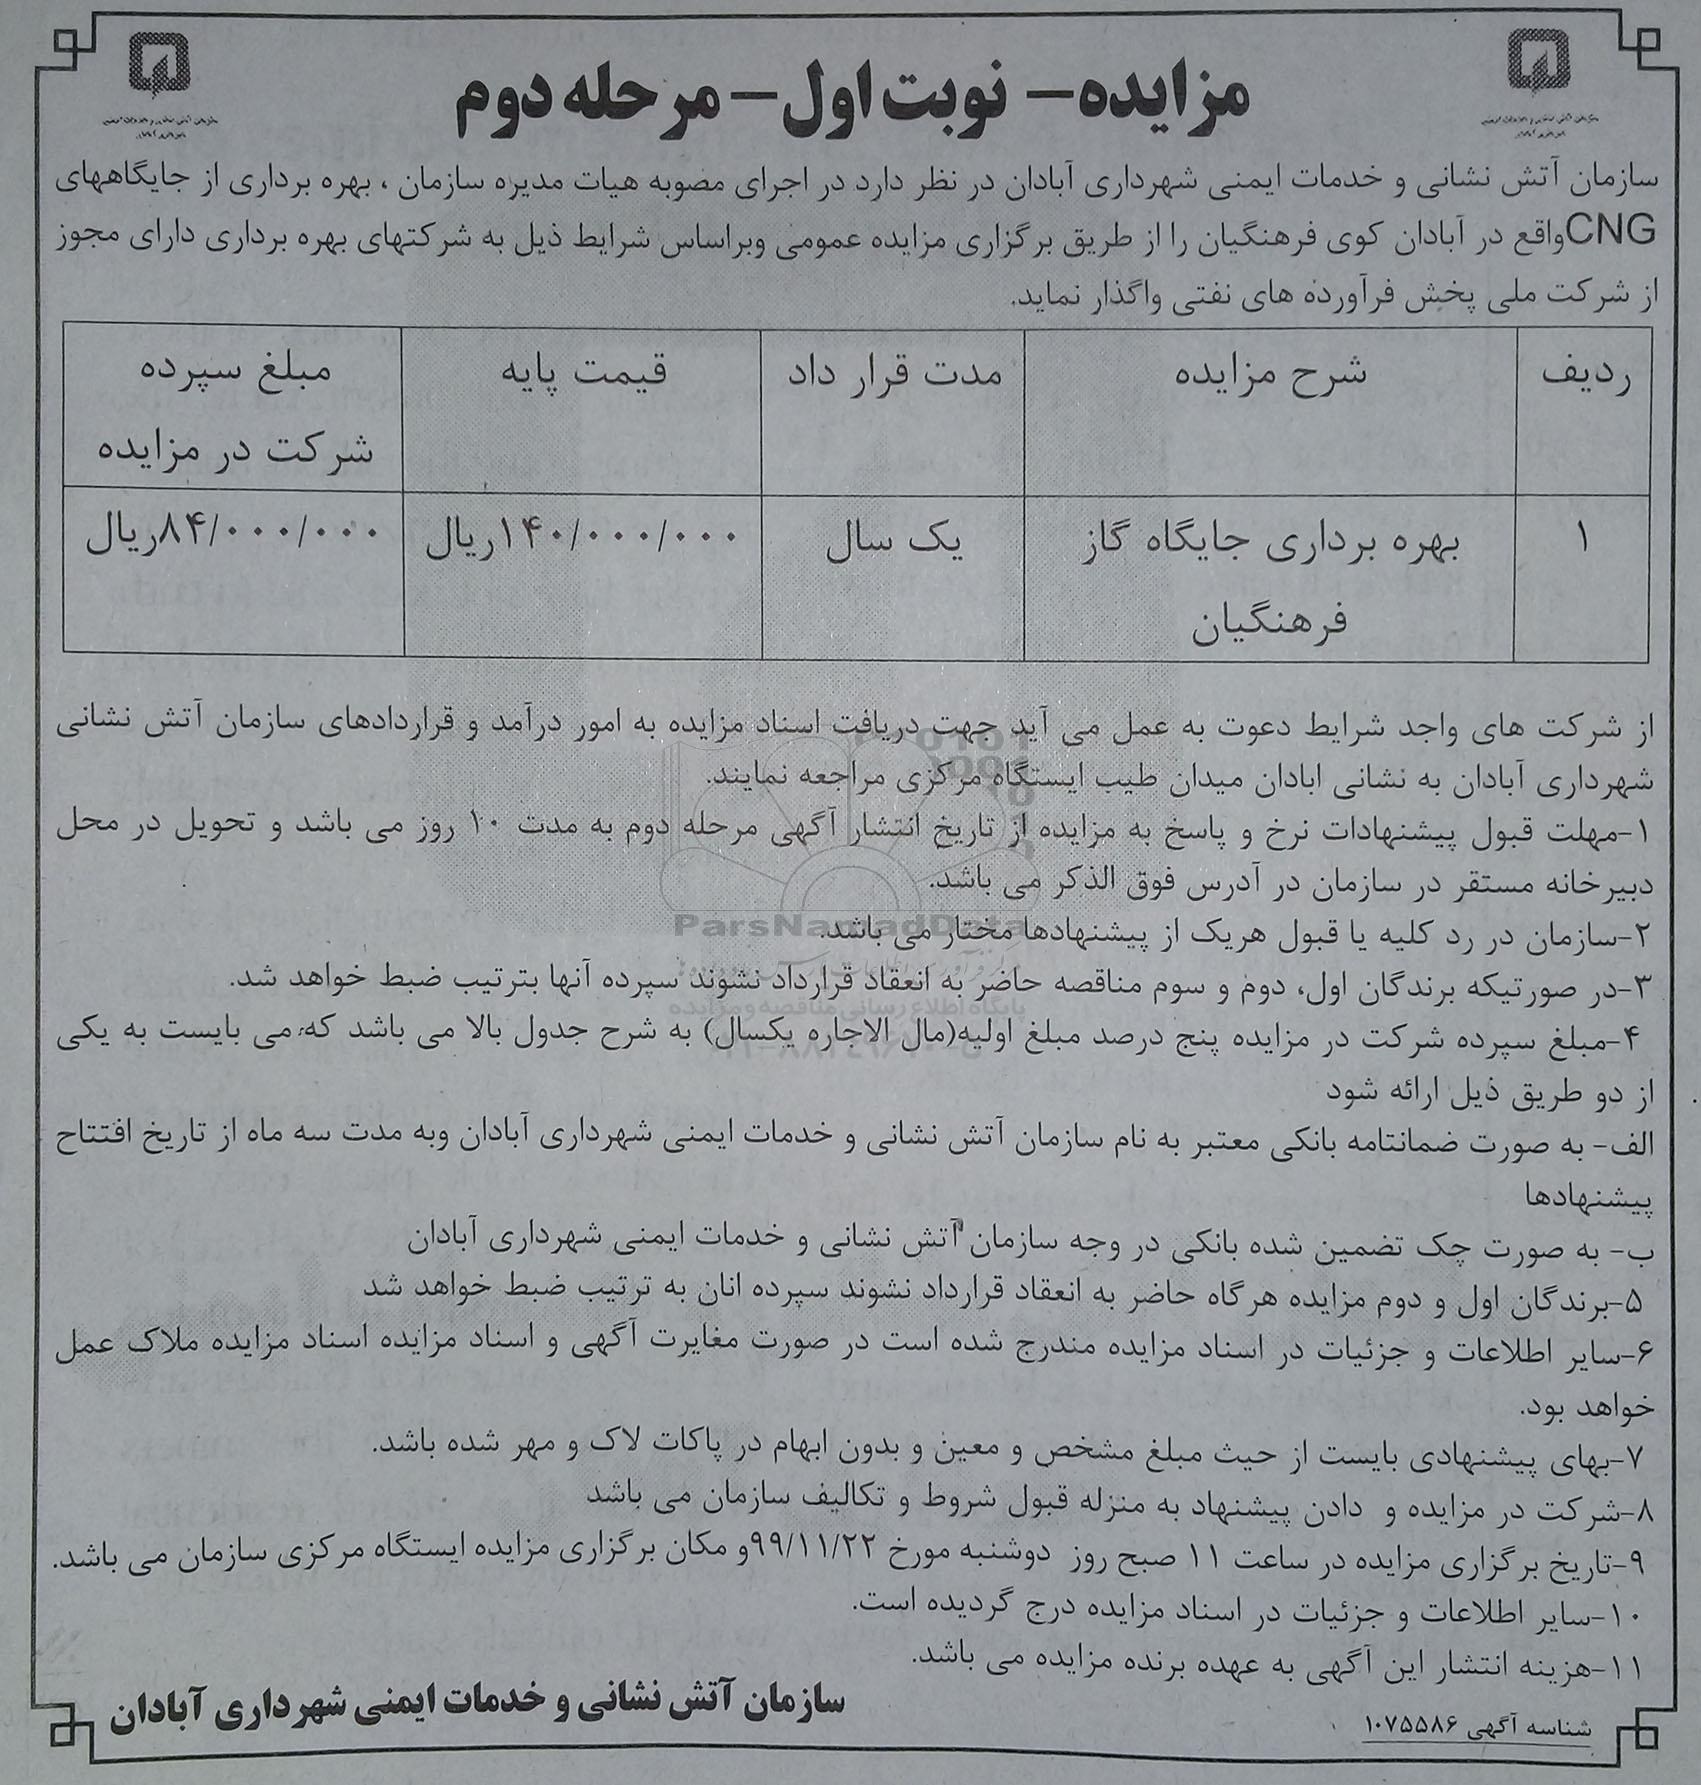 مزایده - نوبت اول - مرحله دوم
سازمان آتش نشانی و خدمات ایمنی شهرداری آبادان در نظر دارد در اجرای مصوبه هیات مدیره سازمان ، بهره برداری از جایگاههای
CNGواقع در آبادان کوی فرهنگیان را از طریق برگزاری مزایده عمومی وبراساس شرایط ذیل به شرکتهای بهره برداری دارای مجوز
از شرکت ملی پخش فرآورده های نفتی واگذار نماید.
ردیف شرح مزایده مدت قرار داد قیمت پایه مبلغ سپرده
شرکت در مزایده
۱ بهره برداری جایگاه گاز یک سال ۱۴۰/۰۰۰/۰۰۰ریال ۸۴/۰۰۰/۰۰۰ریال
فرهنگیان
از شرکت های واجد شرایط دعوت به عمل می آید جهت دریافت اسناد مزایده به امور درآمد و قراردادهای سازمان آتش نشانی
شهرداری آبادان به نشانی ابادان میدان طیب ایستگاه مرکزی مراجعه نمایند.
۱-مهلت قبول پیشنهادات نرخ و پاسخ به مزایده از تاریخ انتشار آگهی مرحله دوم به مدت ۱۰ روز می باشد و تحویل در محل
دبیرخانه مستقر در سازمان در آدرس فوق الذکر می باشد.
ParsNamadData
۲-سازمان در رد کلیه یا قبول هریک از پیشنهادها مختار می باشد.
۳-در صورتیکه برندگان اول، دوم و سوم مناقصه حاضر به انعقاد قرارداد نشوند سپرده آنها بترتیب ضبط خواهد شد.
پایگاه اطلاع رسانی مناقصه و مزایده
۴-مبلغ سپرده شرکت در مزایده پنج درصد مبلغ اولیه(مال الاجاره یکسال) به شرح جدول بالا می باشد که می بایست به یکی
از دو طریق ذیل ارائه شود
الف- به صورت ضمانتامه بانکی معتبر به نام سازمان آتش نشانی و خدمات ایمنی شهرداری آبادان وبه مدت سه ماه از تاریخ افتتاح
پیشنهادها
ب- به صورت چک تضمین شده بانکی در وجه سازمان آتش نشانی و خدمات ایمنی شهرداری آبادان
۵-برندگان اول و دوم مزایده هرگاه حاضر به انعقاد قرارداد نشوند سپرده انان به ترتیب ضبط خواهد شد
۶-سایر اطلاعات و جزئیات در اسناد مزایده مندرج شده است در صورت مغایرت آگهی و اسناد مزایده اسناد مزایده ملاک عمل
خواهد بود.
۷-بهای پیشنهادی بایست از حیث مبلغ مشخص و معین و بدون ابهام در پاکات لاک و مهر شده باشد.
۸-شرکت در مزایده و دادن پیشنهاد به منزله قبول شروط و تکالیف سازمان می باشد
۹-تاریخ برگزاری مزایده در ساعت ۱۱ صبح روز دوشنبه مورخ ۹۹/۱۱/۲۲و مکان برگزاری مزایده ایستگاه مرکزی سازمان می باشد.
۱۰-سایر اطلاعات و جزئیات در اسناد مزایده درج گردیده است.
۱۱-هزینه انتشار این آگهی به عهده برنده مزایده می باشد.
سازمان آتش نشانی و خدمات ایمنی شهرداری آبادان
شناسه آگهی ۱۰۷۵۵۸۶